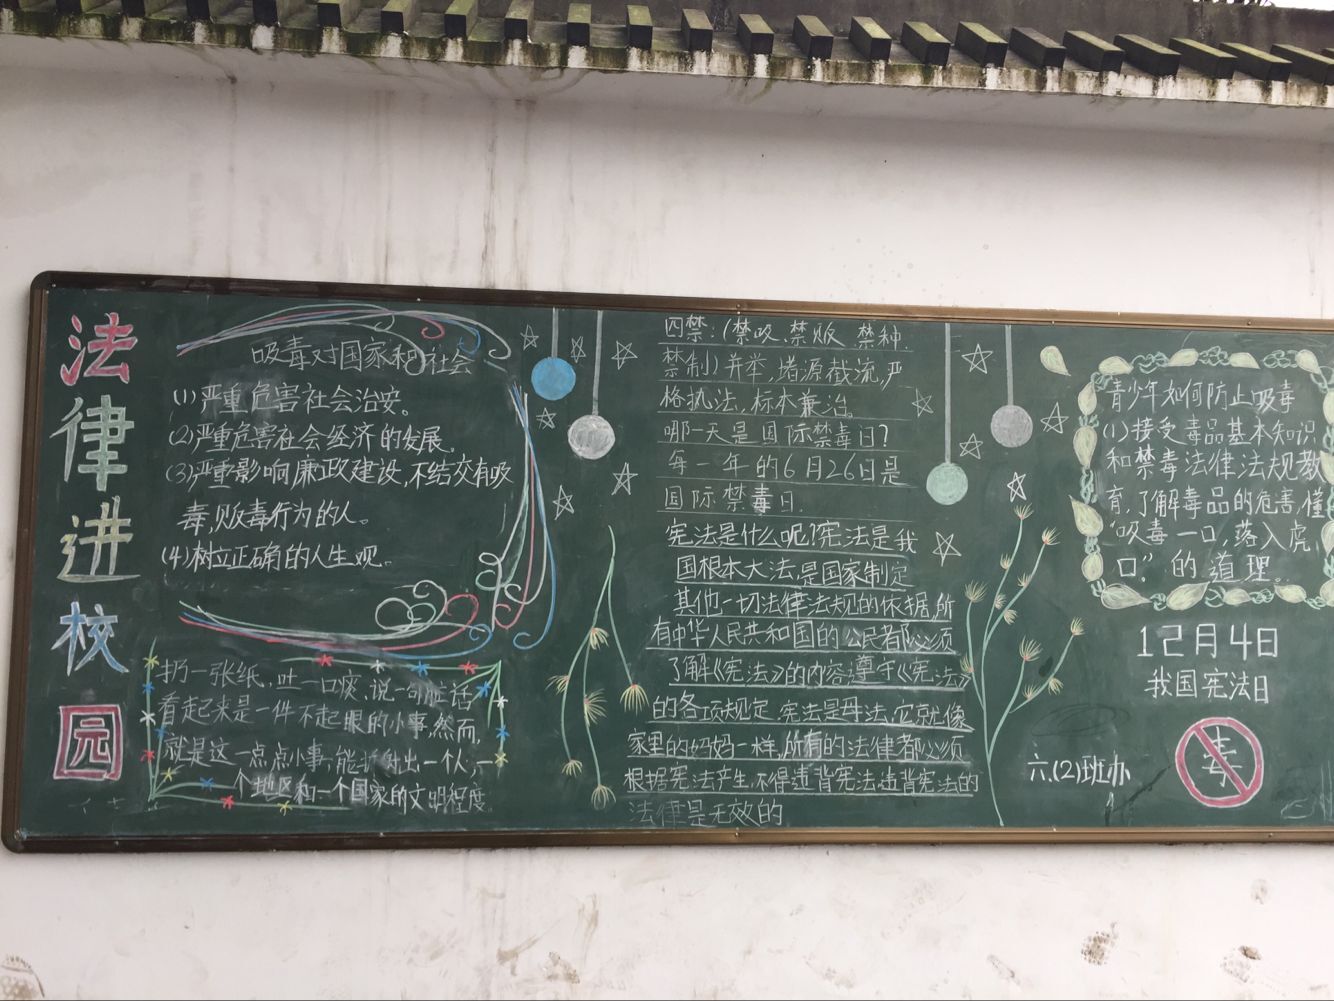 法律进校园
吸毒对国家和社会
(1)严重危害社会治安。
(2)严重危害社会经济的发展。
(3)严重影响廉政建设,不结交有吸
毒,贩毒行为的人。
(4)树立正确的人生观。
扔一张纸,吐一口痰,说一句脏话
看起来是一件不起眼的小事,然而,
就是这一点点小事,能折射出一个人,一
个地区和一个国家的文明程度
四禁:(禁吸、禁贩、禁种、
禁制)并举,堵源截流,严
格执法,标本兼治。
哪一天是国际禁毒日?
每一年的6月26日是
国际禁毒日.
宪法是什么呢?宪法是我
国根本大法,是国家制定
其他一切法律法规的依据,所
有中华人民共和国的公民都必须
了解《宪法》的内容,遵守《宪法》
的各项规定.宪法是母法,它就像
家里的妈妈一样,所有的法律都必须
根据宪法产生,不得违背宪法,违背宪法的
法律是无效的
青少年如何防止吸毒
(1)接受毒品基本知识
和禁毒法律法规教
育,了解毒品的危害,懂
“吸毒一口,落入虎
口”的道理。
12月4日
我国宪法日
六.(2)班办
毒